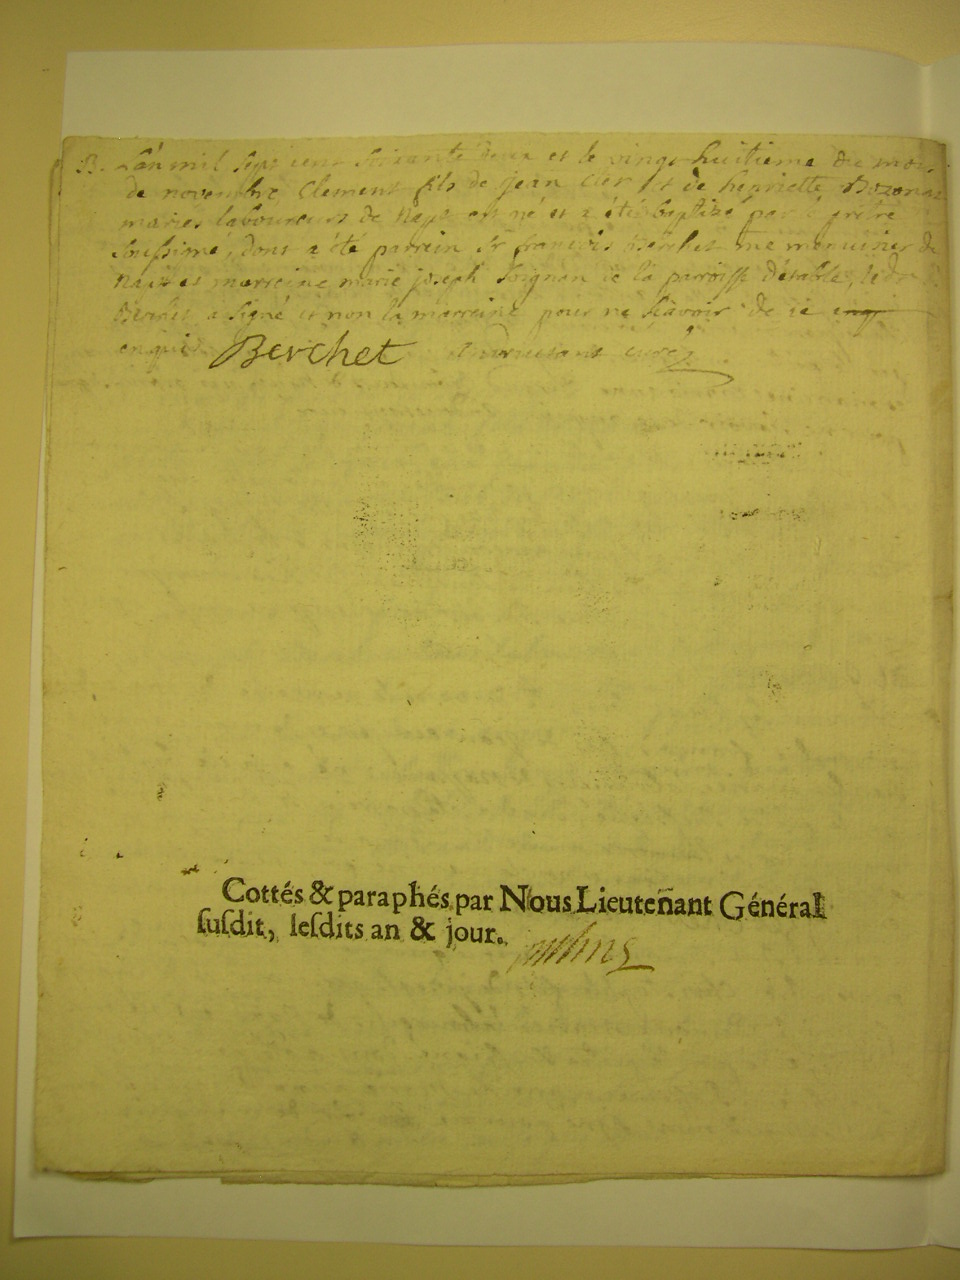 B. L'an mil sept cent soixante deux et le vingt huitieme du mois
de novembre Clement fils de jean clert et de henriette Bozonat
mariés laboureurs de est né et a été baptizé par le prêtre
soussigné, dont a été parrein Sr françois Berchet me menuisier de
et marreine marie joseph de la parroisse d'étable, ledit
Berchet a signé et non la marreine pour ne sçavoir de ce
enquis Berchet curé
Cottés & paraphés par Nous Lieutenant Général
ſuſdit, leſdits an & jour.